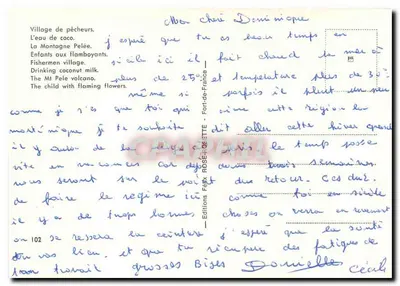 Village de pêcheurs.
L'eau de coco.
La Montagne Pelée.
Enfants aux flamboyants.
Fishermen village.
Drinking coconut milk.
The Mt Pele volcano.
The child with flaming flowers.
102
Editions Félix ROSE-ROSETTE - Fort-de-France
Mon chère Dominique
j'espère que tu as beau temps en
sicile ici il fait chaud la mer à
plus de 25° et température plus de 30°
même si parfois il pleut un peu
comme j'sais que toi qui aime cette région la
martinique je te souhaite dit aller cette hiver quand
il y aura de la neige après le temps passe
vite en vacances car déjà deux trois semaines.
nous seront sur le point du retour. Ces dur.
de faire le régime ici comme toi en sicile
il y a de trop bonnes choses on verra en revenant
on se ressera la ceinture j'espère que la santé
va bien. et que tu récupère des fatigues de
ton travail grosses Bises Danielle Cécile